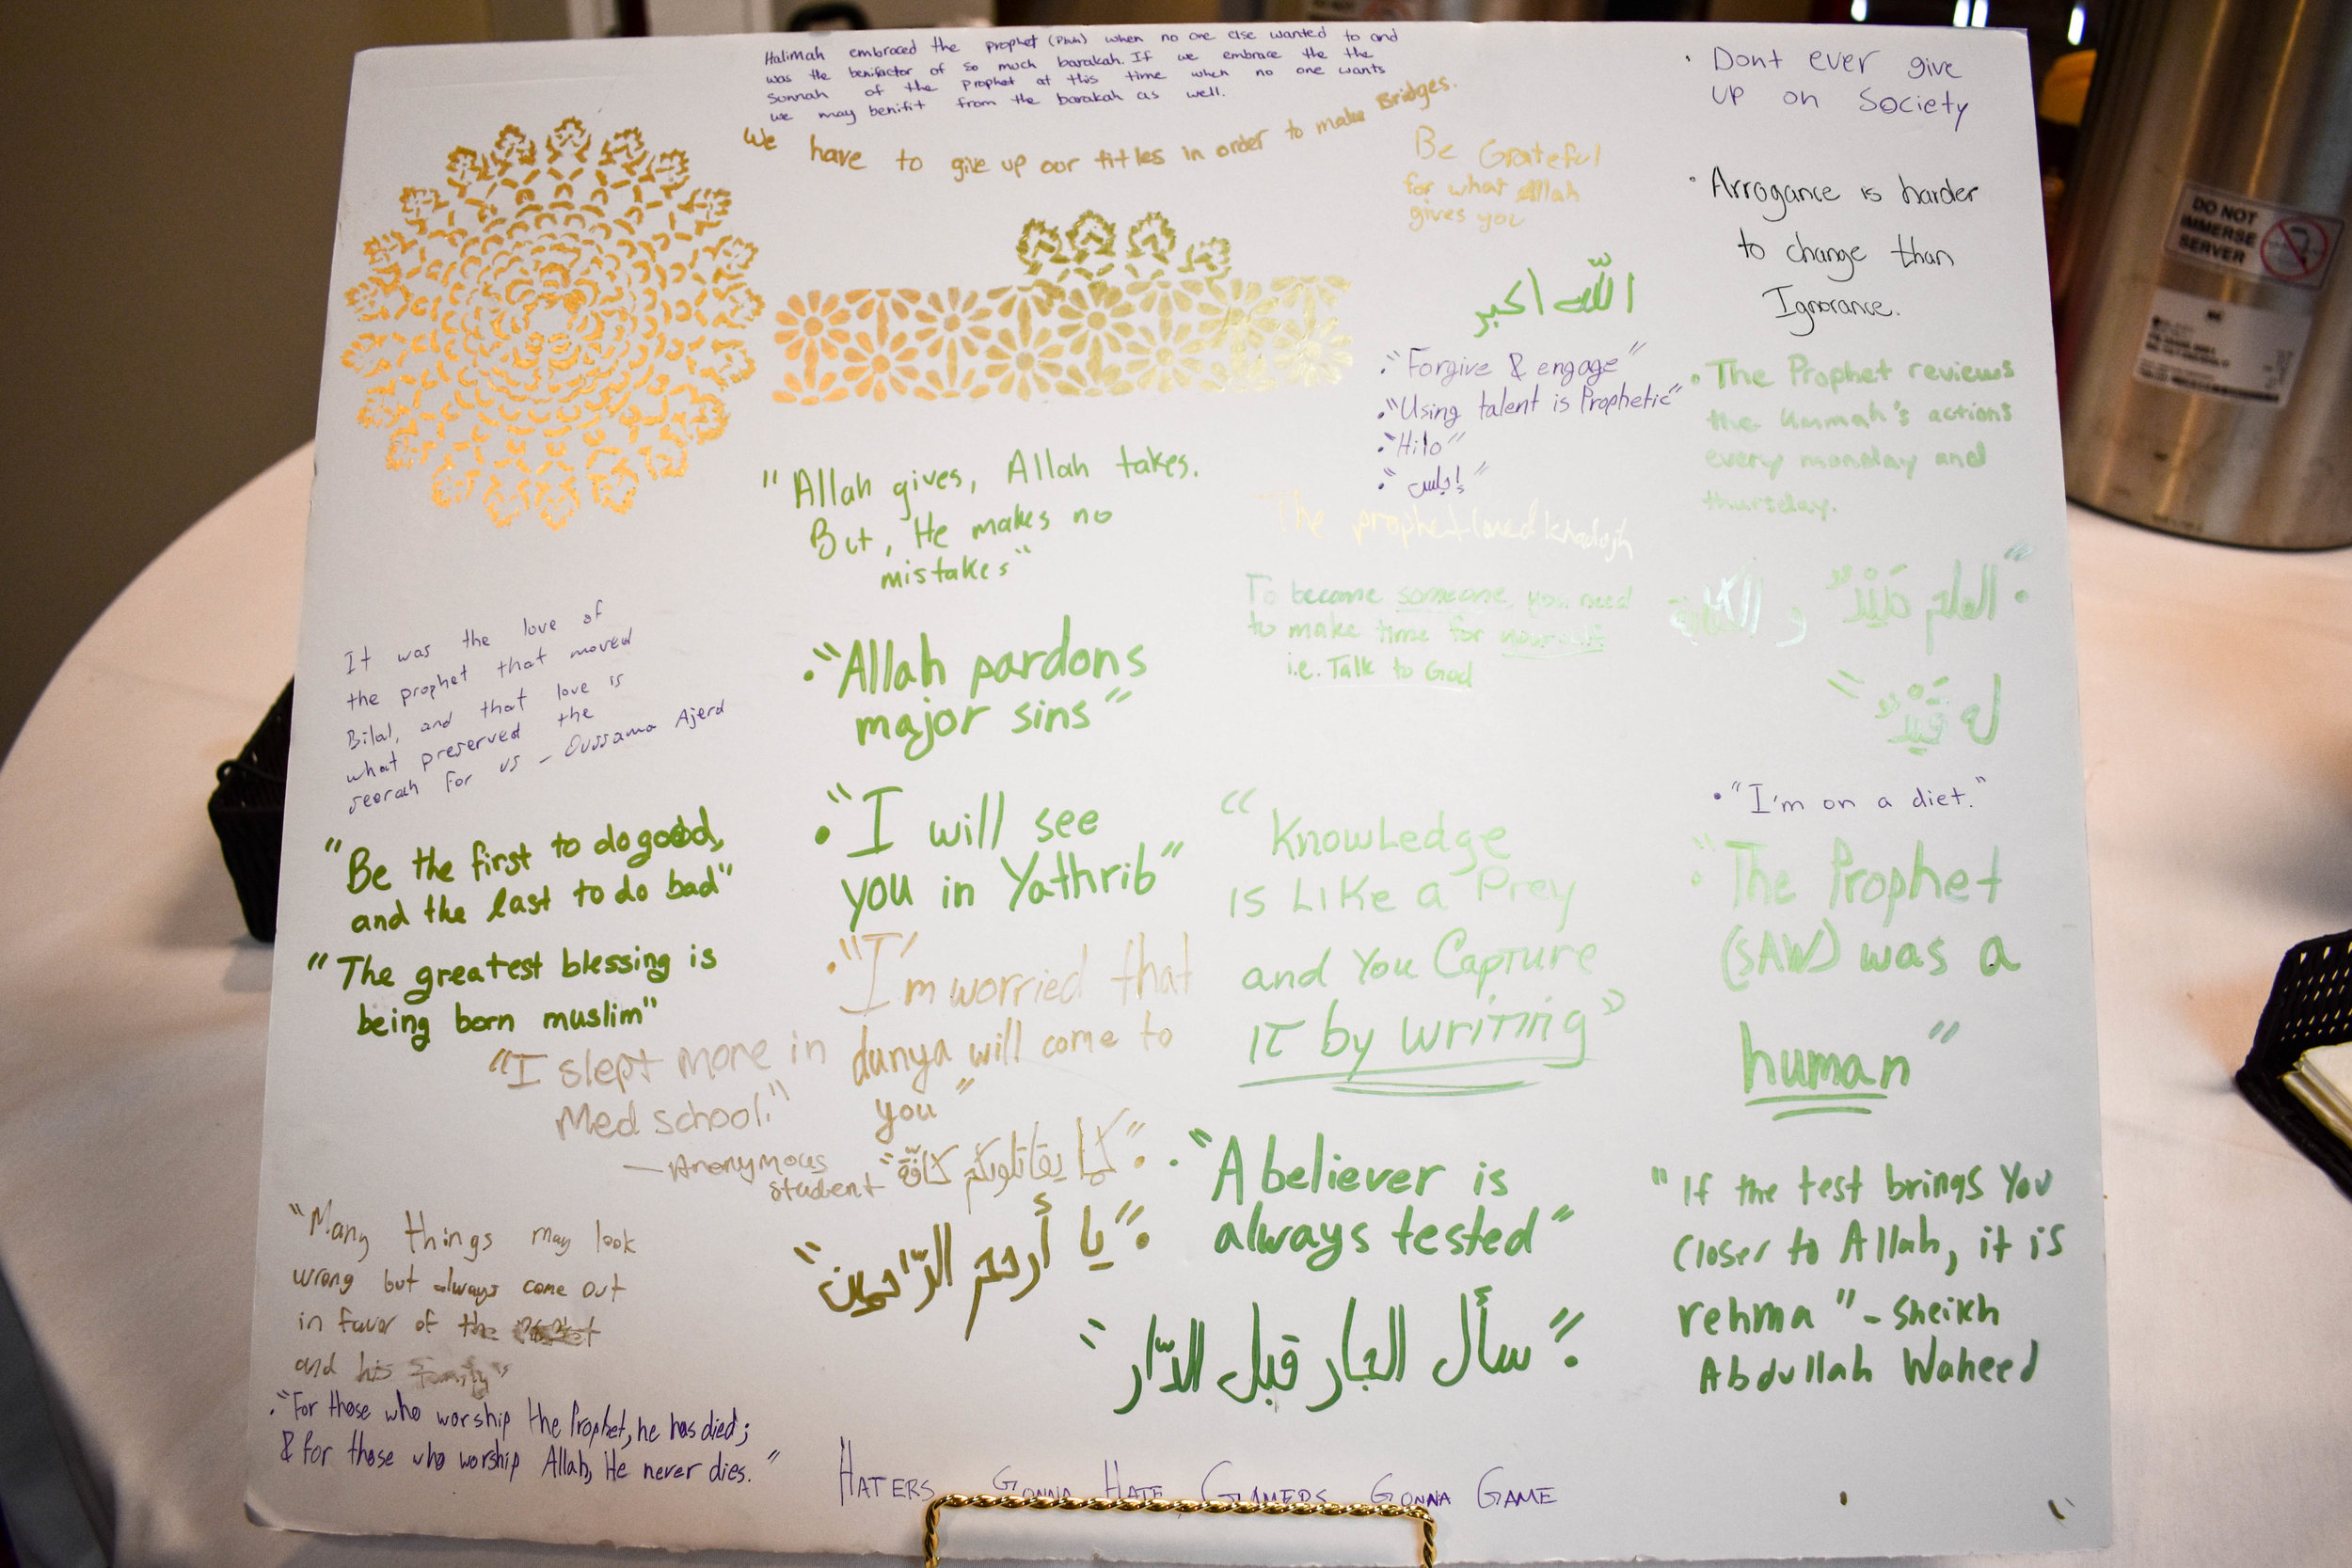 Halimah embraced the prophet (Pbuh) when no one else wanted to and
was the benifactor of so much barakah. If we embrace the the
Sunnah of the Prophet at this time when no one wants
we may benifit from the barakah as well.
We have to give up our titles in order to make Bridges.
Be Grateful
for what Allah
gives you
الله اكبر
• "Forgive & engage"
• "Using talent is Prophetic"
• "Hilo"
• "إبلس"
The prophet loved khadijh
To become someone, you need
to make time for yourself
i.e. Talk to God
• Dont ever give
up on Society
• Arrogance is harder
to change than
Ignorance.
• The Prophet reviews
the Ummah's actions
every monday and
thursday.
• "العلم صَيْدٌ و الكتابة
له قَيْدٌ"
• "I'm on a diet."
• "The Prophet
(SAW) was a
human"
"If the test brings You
closer to Allah, it is
rehma" - Sheikh
Abdullah Waheed
"Allah gives, Allah takes.
But, He makes no
mistakes"
• "Allah pardons
major sins"
• "I will see
you in Yathrib"
• "I'm worried that
dunya will come to
you"
• "كما يقاتلونكم كافّة"
• "يا أرحم الرّاحمين"
"Knowledge
is Like a Prey
and You Capture
it by writing"
• "A believer is
always tested"
• "سأل الجار قبل الدّار"
It was the love of
the prophet that moved
Bilal, and that love is
what preserved the
seerah for us - Oussama Ajerd
"Be the first to do good,
and the last to do bad"
"The greatest blessing is
being born muslim"
"I slept more in
Med school."
- Anonymous
student
"Many things may look
wrong but always come out
in favor of the
and his family"
• "For those who worship the Prophet, he has died;
& for those who worship Allah, He never dies."
HATERS GONNA HATE GAMERS GONNA GAME
DO NOT
IMMERSE
SERVER